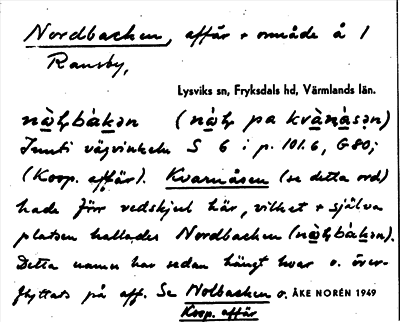 Nordbacken, affär + område å 1
Ransby,
Lysviks sn, Fryksdals hd, Värmlands län.
Inuti vägvinkeln S 6 i p. 101.6, G80;
(Koop. affär). Kvarnåsen (se detta ord)
hade förr vedskjul här, vilket + själva
platsen kallades Nordbacken
Detta namn har sedan hängt kvar o. över-
flyttats på aff. Se Nolbacken o. ÅKE NORÉN 1949
Koop. affär